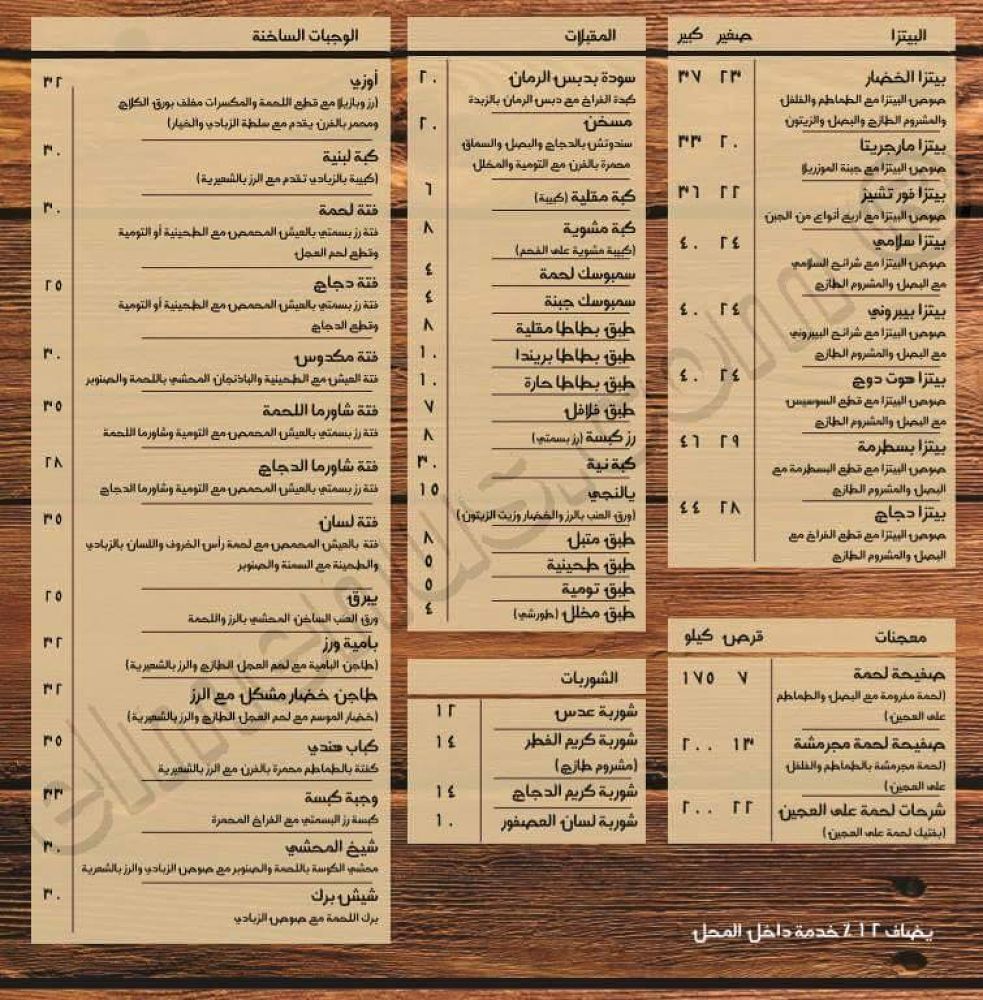 البيتزا صغير كبير
بيتزا الخضار ٢٣ ٣٧
صوص البيتزا مع الطماطم والفلفل
والمشروم الطازج والبصل والزيتون
بيتزا مارجريتا ٢٠ ٣٣
صوص البيتزا مع جبنة الموزريلا
بيتزا فور تشيز ٢٢ ٣٦
صوص البيتزا مع اربع أنواع من الجبن
بيتزا سلامي ٢٤ ٤٠
صوص البيتزا مع شرائح السلامي
مع البصل والمشروم الطازج
بيتزا بيبروني ٢٤ ٤٠
صوص البيتزا مع شرائح البيبروني
مع البصل والمشروم الطازج
بيتزا هوت دوج ٢٤ ٤٠
صوص البيتزا مع قطع السوسيس
مع البصل والمشروم الطازج
بيتزا بسطرمة ٢٩ ٤٦
صوص البيتزا مع قطع البسطرمة مع
البصل والمشروم الطازج
بيتزا دجاج ٢٨ ٤٤
صوص البيتزا مع قطع الفراخ مع
البصل والمشروم الطازج
معجنات قرص كيلو
صفيحة لحمة ٧ ١٧٥
(لحمة مفرومة مع البصل والطماطم
على العجين)
صفيحة لحمة مجرمشة ١٣ ٢٠٠
(لحمة مجرمشة بالطماطم والفلفل
على العجين)
شرحات لحمة على العجين ٢٢ ٢٠٠
(بفتيك لحمة على العجين)
يضاف ١٢٪ خدمة داخل المحل
المقبلات
سودة بدبس الرمان ٢٠
كبدة الفراخ مع دبس الرمان بالزبدة
مسخن ٢٠
سندوتش بالدجاج والبصل والسماق
محمرة بالفرن مع التومية والمخلل
كبة مقلية (كبيبة) ٦
كبة مشوية ٨
(كبيبة مشوية على الفحم)
سمبوسك لحمة ٤
سمبوسك جبنة ٤
طبق بطاطا مقلية ٨
طبق بطاطا بريندا ١٠
طبق بطاطا حارة ١٠
طبق فلافل ٧
رز كبسة (رز بسمتي) ٨
كبة نية ٣٠
يالنجي ١٥
(ورق العنب بالرز والخضار وزيت الزيتون)
طبق متبل ٨
طبق طحينية ٥
طبق تومية ٥
طبق مخلل (طورشي) ٤
الشوربات
شوربة عدس ١٢
شوربة كريم الفطر ١٤
(مشروم طازج)
شوربة كريم الدجاج ١٤
شوربة لسان العصفور ١٠
الوجبات الساخنة
أوزي ٣٢
(رز وبازيلا مع قطع اللحمة والمكسرات مغلف بورق الكلاج
ومحمر بالفرن يقدم مع سلطة الزبادي والخيار)
كبة لبنية ٣٠
(كبيبة بالزبادي تقدم مع الرز بالشعيرية)
فتة لحمة ٣٠
فتة رز بسمتي بالعيش المحمص مع الطحينية أو التومية
وقطع لحم العجل
فتة دجاج ٢٥
فتة رز بسمتي بالعيش المحمص مع الطحينية أو التومية
وقطع الدجاج
فتة مكدوس ٣٠
فتة العيش مع الطحينية والباذنجان المحشي باللحمة والصنوبر
فتة شاورما اللحمة ٣٥
فتة رز بسمتي بالعيش المحمص مع التومية وشاورما اللحمة
فتة شاورما الدجاج ٢٨
فتة رز بسمتي بالعيش المحمص مع التومية وشاورما الدجاج
فتة لسان ٣٥
فتة بالعيش المحمص مع لحمة رأس الخروف واللسان بالزبادي
والطحينة مع السمنة والصنوبر
يبرق ٢٥
ورق العنب الساخن المحشي بالرز واللحمة
بامية ورز ٣٢
(طاجن البامية مع لحم العجل الطازج والرز بالشعيرية)
طاجن خضار مشكل مع الرز ٣٢
(خضار الموسم مع لحم العجل الطازج والرز بالشعيرية)
كباب هندي ٣٥
كفتة بالطماطم محمرة بالفرن مع الرز بالشعيرية
وجبة كبسة ٣٣
كبسة رز البسمتي مع الفراخ المحمرة
شيخ المحشي ٣٠
محشي الكوسة باللحمة والصنوبر مع صوص الزبادي والرز بالشعرية
شيش برك ٣٠
برك اللحمة مع صوص الزبادي
elmenus.com